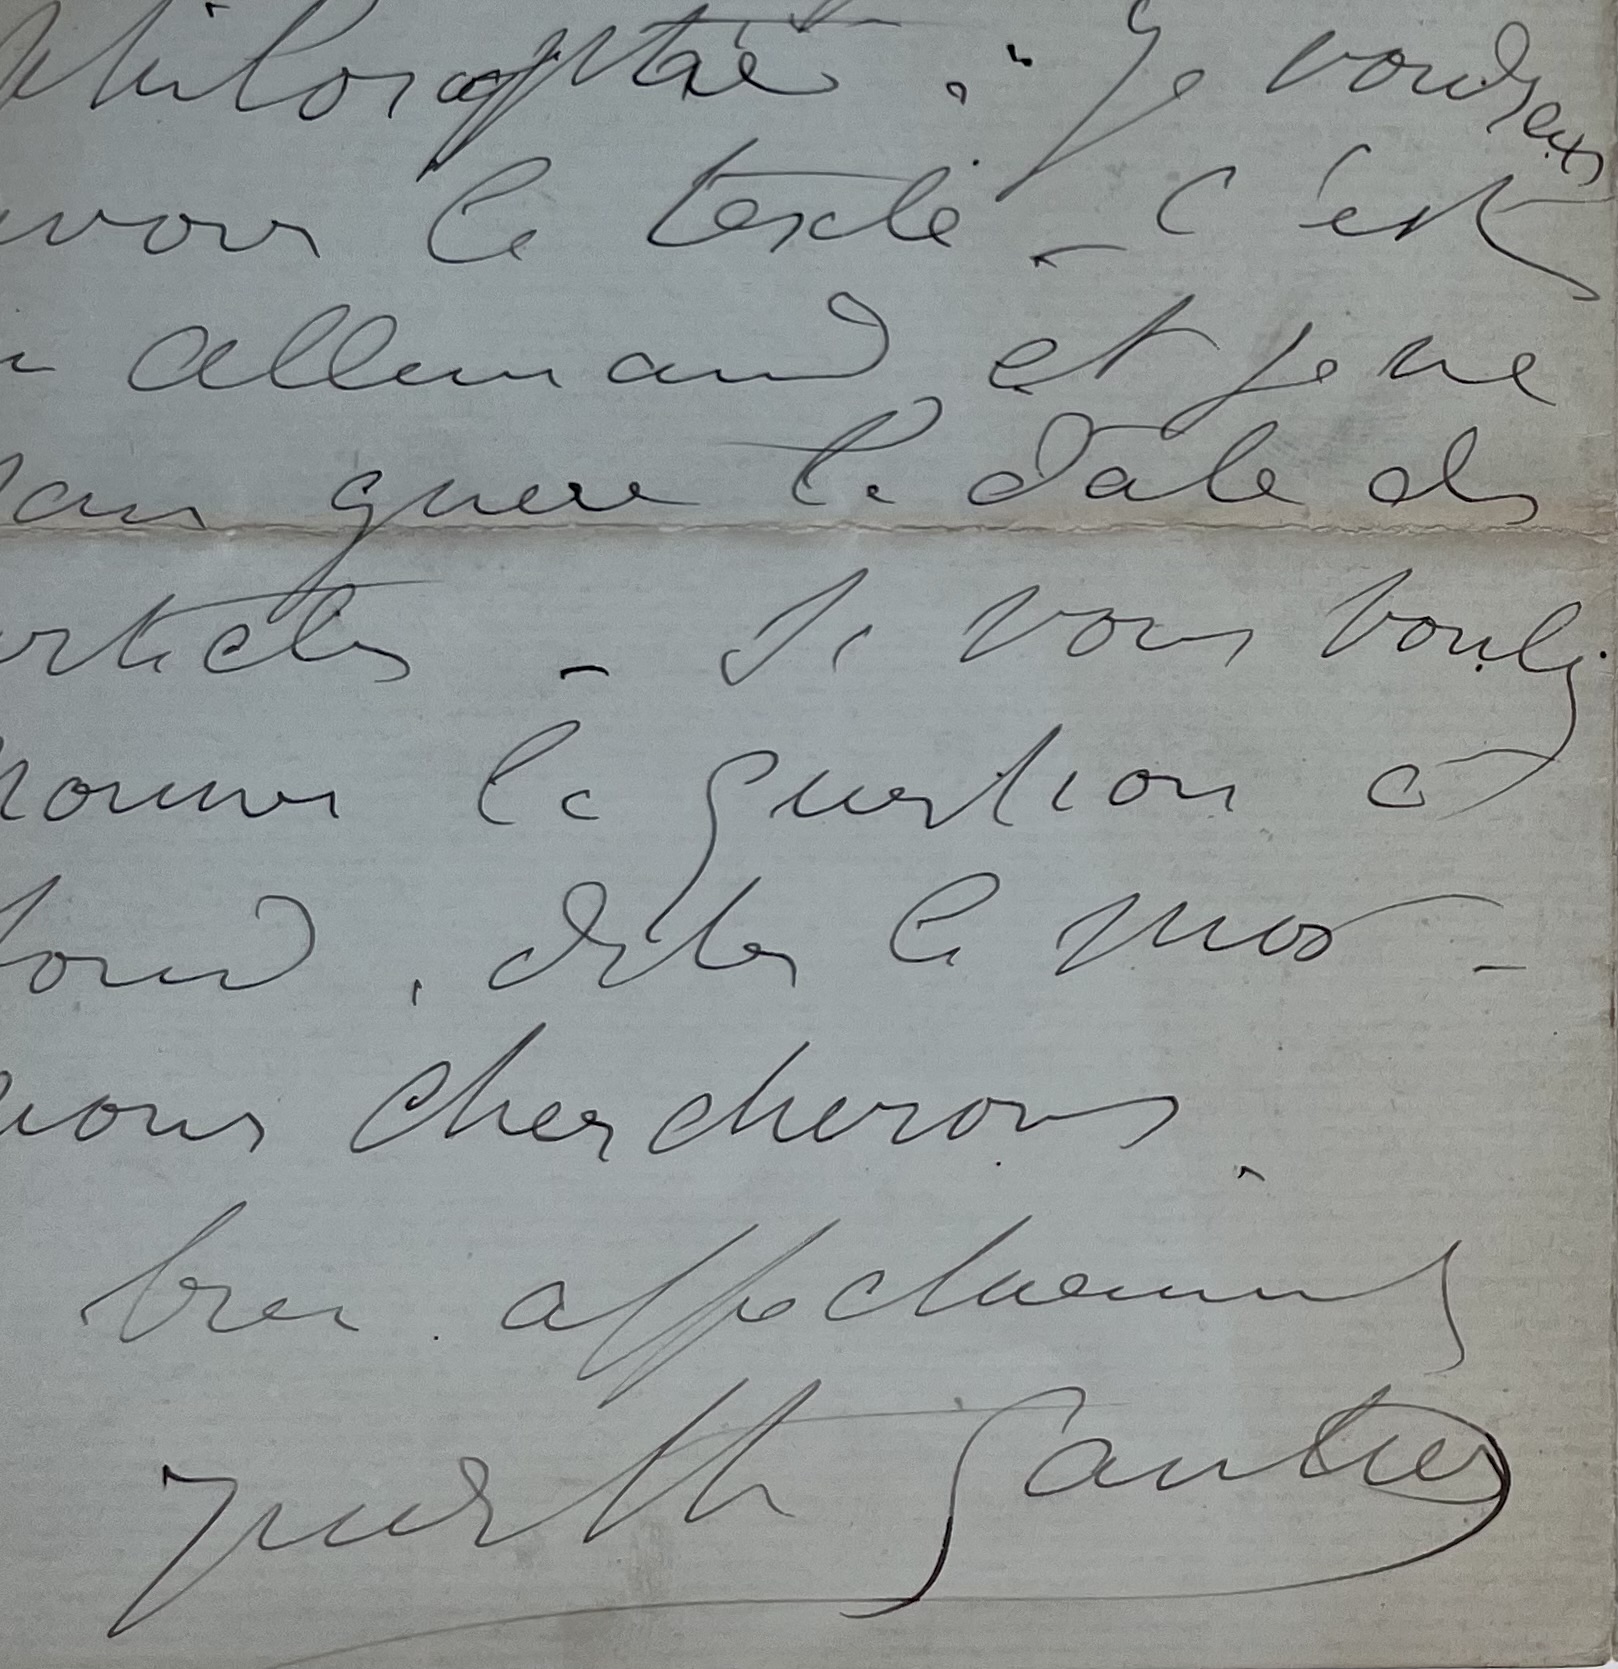 philosophie : Je voudrais
avoir le texte - c'est
allemand et je ne
sais guere la date des
articles - Si vous voulez
la question a
fond, dites le moi -
nous chercherons.
bien affectueusement
Judith Gautier